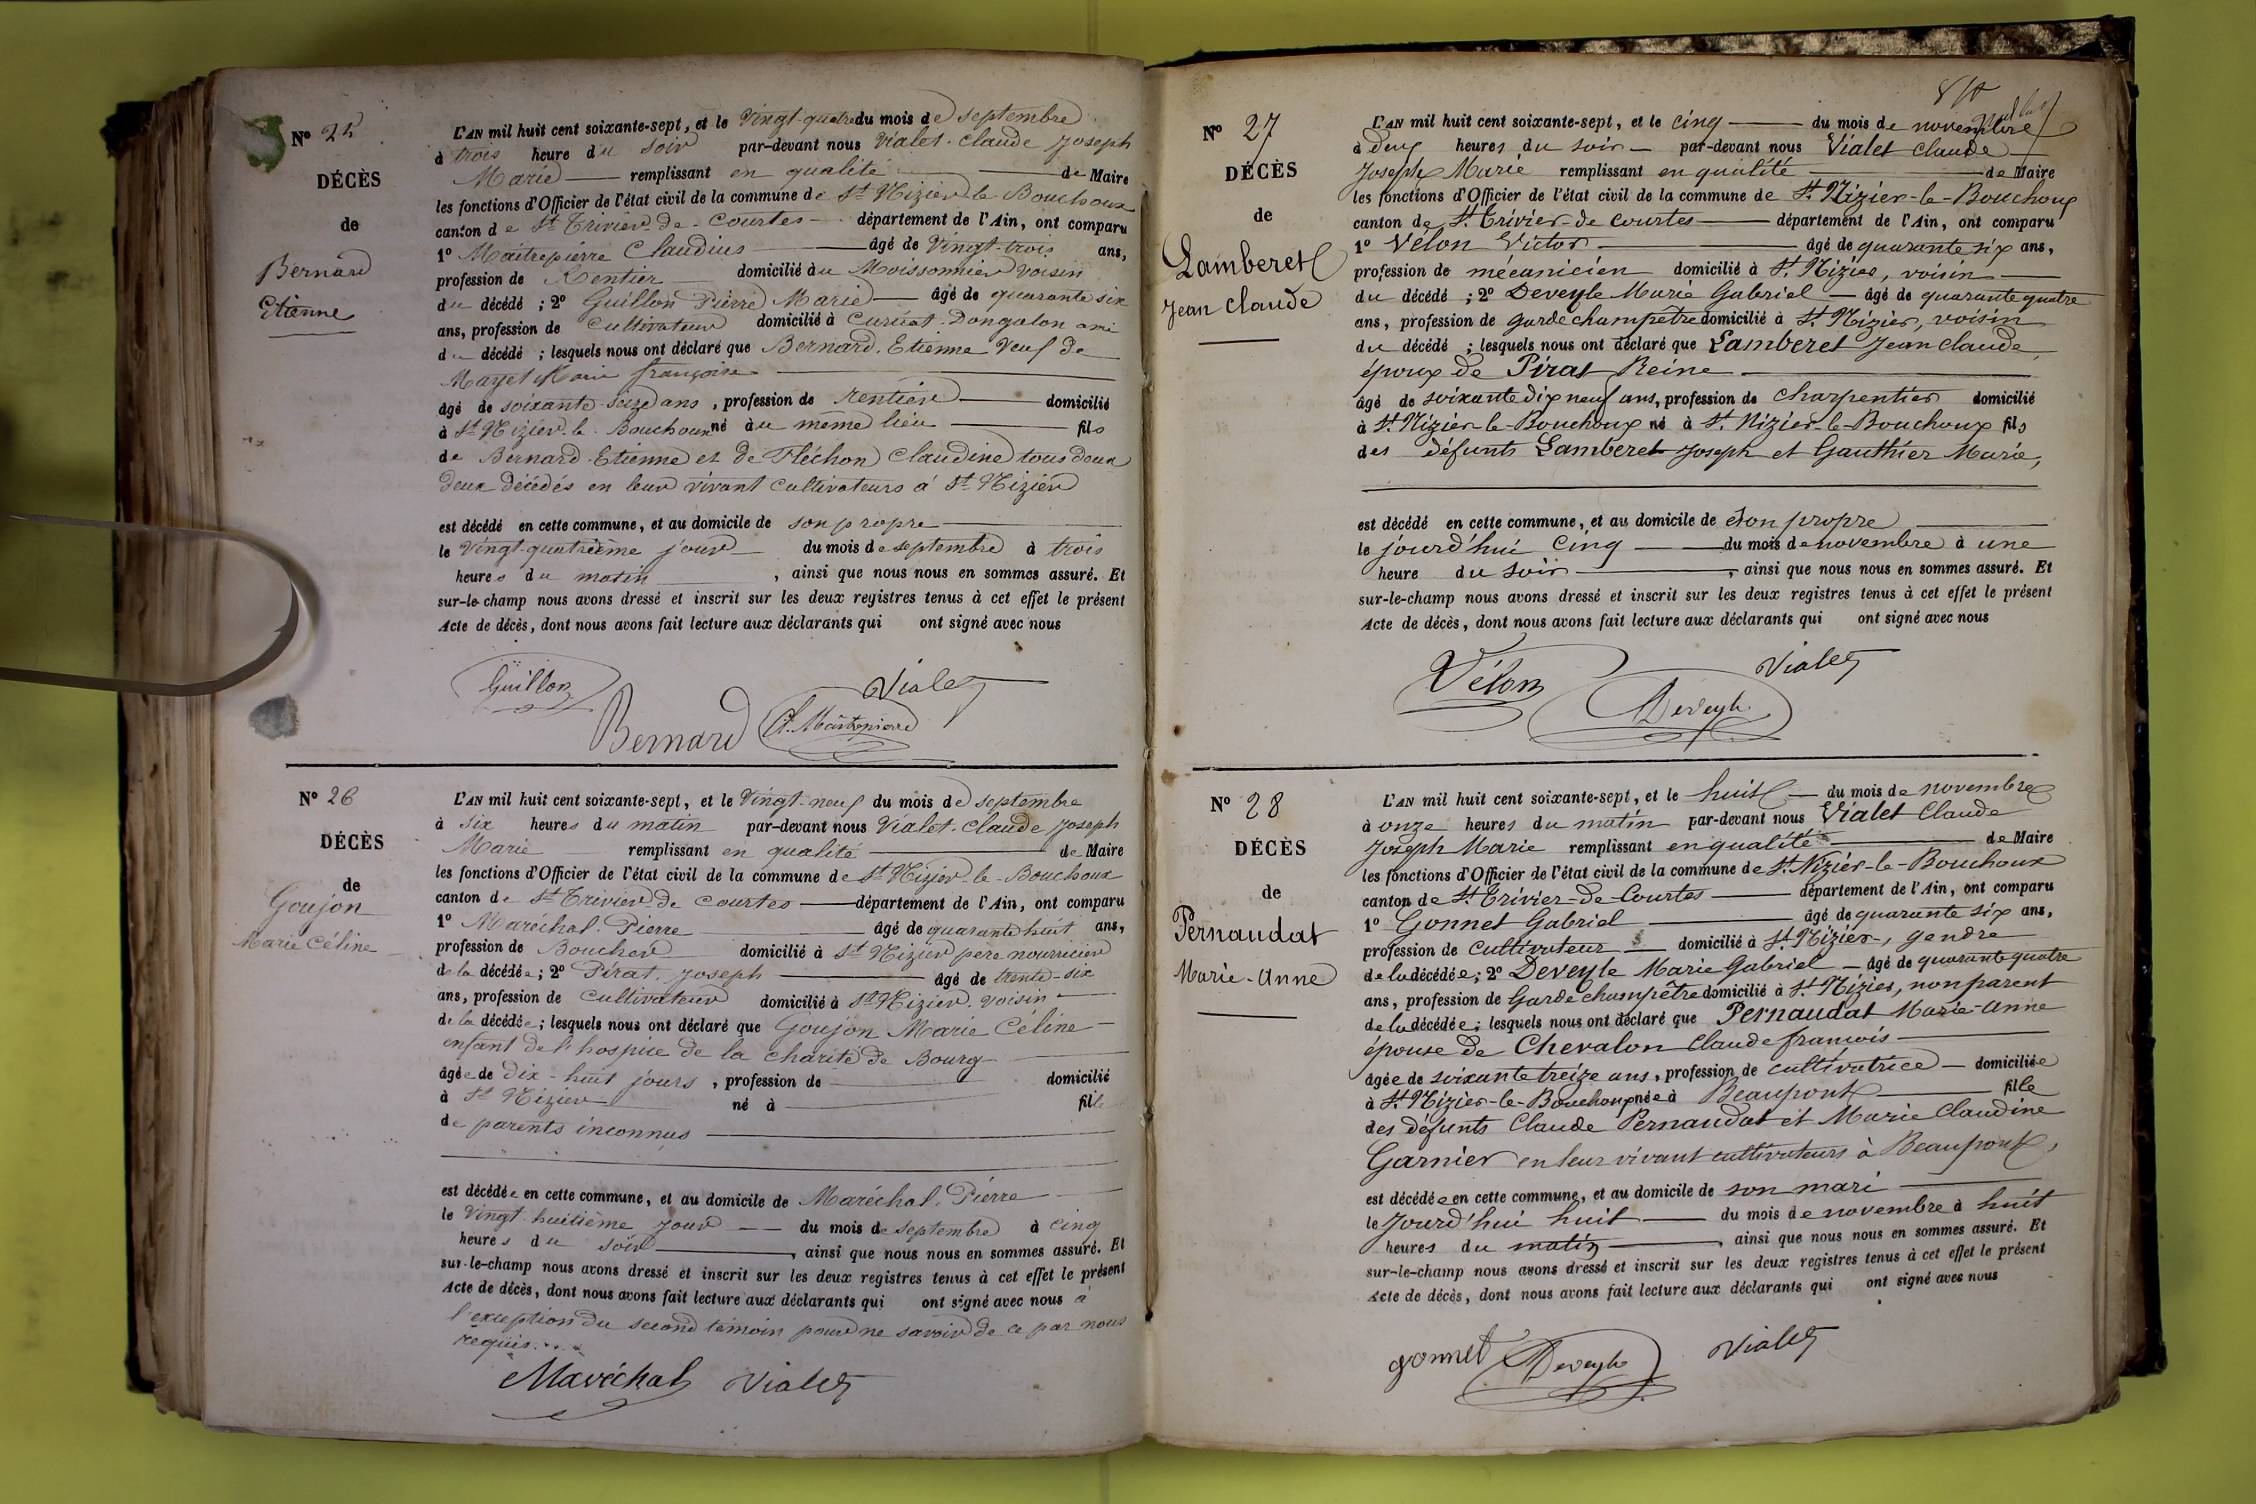 N° 25
DÉCÈS
de
Bernard
Etienne
L'AN mil huit cent soixante-sept, et le Vingt-quatre du mois de septembre
à trois heure du soir par-devant nous Vialet Claude Joseph
Marie remplissant en qualité de Maire
les fonctions d'Officier de l'état civil de la commune de St Nizier le Bouchoux
canton de St Trivier de Courtes département de l'Ain, ont comparu
1° Maitrepierre Claudius âgé de Vingt-trois ans,
profession de Rentier domicilié au Moissonnier voisin
du décédé ; 2° Guillon Pierre Marie âgé de quarante six
ans, profession de Cultivateur domicilié à Curciat-Dongalon ami
du décédé ; lesquels nous ont déclaré que Bernard Etienne Veuf de
Mayet Marie françoise
âgé de soixante seize ans, profession de Rentier domicilié
à St Nizier le Bouchoux né au même lieu fils
de Bernard Etienne et de Fléchon Claudine tous deux
deux décédés en leur vivant Cultivateurs à St Nizier
est décédé en cette commune, et au domicile de son propre
le Vingt-quatrième jour du mois de septembre à trois
heures du matin, ainsi que nous nous en sommes assuré. Et
sur-le-champ nous avons dressé et inscrit sur les deux registres tenus à cet effet le présent
Acte de décès, dont nous avons fait lecture aux déclarants qui ont signé avec nous
Guillon Vialet
Bernard Cl. Maitrepierre
N° 26
DÉCÈS
de
Goujon
Marie Céline
L'AN mil huit cent soixante-sept, et le Vingt-neuf du mois de septembre
à six heures du matin par-devant nous Vialet Claude Joseph
Marie remplissant en qualité de Maire
les fonctions d'Officier de l'état civil de la commune de St Nizier le Bouchoux
canton de St Trivier de Courtes département de l'Ain, ont comparu
1° Maréchal Pierre âgé de quarante huit ans,
profession de Boucher domicilié à St Nizier père nourricier
de la décédée; 2° Pirat Joseph âgé de trente-six
ans, profession de Cultivateur domicilié à St Nizier voisin
de la décédée; lesquels nous ont déclaré que Goujon Marie Céline
enfant de l'hospice de la charité de Bourg
âgée de dix-huit jours, profession de domicilié
à St Nizier né à fille
de parents inconnus
est décédée en cette commune, et au domicile de Maréchal Pierre
le Vingt huitième jour du mois de septembre à cinq
heures du soir, ainsi que nous nous en sommes assuré. Et
sur-le-champ nous avons dressé et inscrit sur les deux registres tenus à cet effet le présent
Acte de décès, dont nous avons fait lecture aux déclarants qui ont signé avec nous à
l'exception du second témoin pour ne savoir de ce par nous
requis...
Maréchal Vialet
N° 27
DÉCÈS
de
Lamberet
Jean Claude
L'AN mil huit cent soixante-sept, et le cinq du mois de novembre
à deux heures du soir par-devant nous Vialet Claude
Joseph Marie remplissant en qualité de Maire
les fonctions d'Officier de l'état civil de la commune de St Nizier-le-Bouchoux
canton de St Trivier-de-Courtes département de l'Ain, ont comparu
1° Vélon Victor âgé de quarante six ans,
profession de mécanicien domicilié à St Nizier, voisin
du décédé ; 2° Deveyle Marie Gabriel âgé de quarante quatre
ans, profession de garde champêtre domicilié à St Nizier, voisin
du décédé ; lesquels nous ont déclaré que Lamberet Jean Claude,
époux de Pirat Reine
âgé de soixante dix neuf ans, profession de charpentier domicilié
à St Nizier-le-Bouchoux né à St Nizier-le-Bouchoux fils
des défunts Lamberet Joseph et Gauthier Marie,
est décédé en cette commune, et au domicile de son propre
le jourd'hui cinq du mois de novembre à une
heure du soir, ainsi que nous nous en sommes assuré. Et
sur-le-champ nous avons dressé et inscrit sur les deux registres tenus à cet effet le présent
Acte de décès, dont nous avons fait lecture aux déclarants qui ont signé avec nous
Vélon Deveyle Vialet
N° 28
DÉCÈS
de
Pernaudat
Marie-Anne
L'AN mil huit cent soixante-sept, et le huit du mois de novembre
à onze heures du matin par-devant nous Vialet Claude
Joseph Marie remplissant en qualité de Maire
les fonctions d'Officier de l'état civil de la commune de St Nizier-le-Bouchoux
canton de St Trivier-de-Courtes département de l'Ain, ont comparu
1° Gonnet Gabriel âgé de quarante six ans,
profession de Cultivateur domicilié à St Nizier, gendre
de la décédée; 2° Deveyle Marie Gabriel âgé de quarante quatre
ans, profession de Garde champêtre domicilié à St Nizier, non parent
de la décédée; lesquels nous ont déclaré que Pernaudat Marie-Anne
épouse de Chevalon Claude francois
âgée de soixante treize ans, profession de cultivatrice domiciliée
à St Nizier-le-Bouchoux née à Beaupont fille
des défunts Claude Pernaudat et Marie Claudine
Garnier en leur vivant cultivateurs à Beaupont,
est décédée en cette commune, et au domicile de son mari
le jourd'hui huit du mois de novembre à huit
heures du matin, ainsi que nous nous en sommes assuré. Et
sur-le-champ nous avons dressé et inscrit sur les deux registres tenus à cet effet le présent
Acte de décès, dont nous avons fait lecture aux déclarants qui ont signé avec nous
gonnet Deveyle Vialet